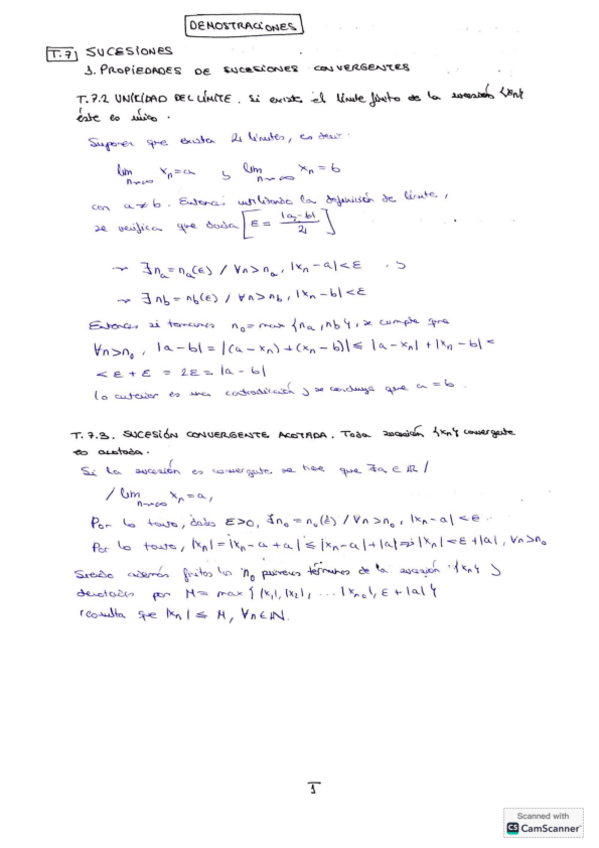 DEMOSTRACIONES
T.7 SUCESIONES
1. PROPIEDADES DE SUCESIONES CONVERGENTES
T.7.2 UNICIDAD DEL LÍMITE. Si existe el límite finito de la sucesión {xn}
éste es único.
Suponer que existen 2 límites, es decir:
lim n→∞ xn = a y lim n→∞ xn = b
con a ≠ b. Entonces utilizando la definición de límite,
se verifica que dado [ε = |a-b|/2]
→ ∃ na = na(ε) / ∀n > na, |xn - a| < ε y
→ ∃ nb = nb(ε) / ∀n > nb, |xn - b| < ε
Entonces si tomamos n0 = max {na, nb}, se cumple que
∀n > n0, |a-b| = |(a-xn) + (xn-b)| ≤ |a-xn| + |xn-b| <
< ε + ε = 2ε = |a-b|
Lo anterior es una contradicción y se concluye que a = b.
T.7.3. SUCESIÓN CONVERGENTE ACOTADA. Toda sucesión {xn} convergente
es acotada.
Si la sucesión es convergente, se tiene que ∃a ∈ ℝ /
/ lim n→∞ xn = a,
Por lo tanto, dado ε > 0, ∃ n0 = n0(ε) / ∀n > n0, |xn - a| < ε
Por lo tanto, |xn| = |xn - a + a| ≤ |xn - a| + |a| ⇒ |xn| < ε + |a|, ∀n > n0
Siendo además finitos los n0 primeros términos de la sucesión {xn} y
denotados por M = max {|x1|, |x2|, ... |xn0|, ε + |a|}
resulta que |xn| ≤ M, ∀n ∈ ℕ.
1
Scanned with
CS CamScanner